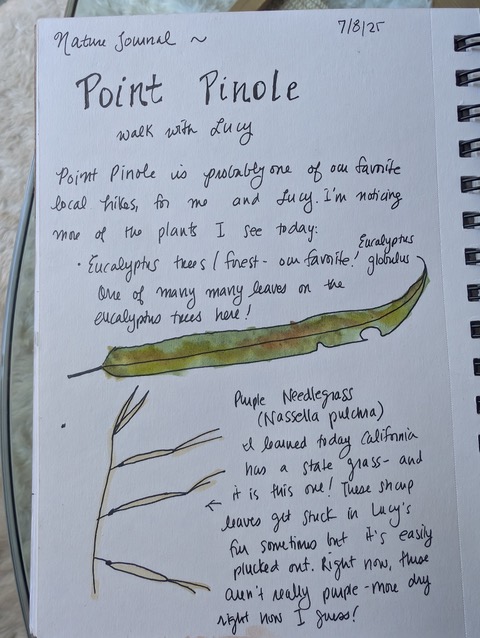 Nature Journal ~
7/8/25
Point Pinole
walk with Lucy
Point Pinole is probably one of our favorite
local hikes, for me and Lucy. I'm noticing
more of the plants I see today:
• Eucalyptus trees / forest - our favorite!
One of many many leaves on the
eucalyptus trees here!
Eucalyptus
globulus
Purple Needlegrass
(Nassella pulchra)
I learned today California
has a state grass - and
it is this one! These sharp
leaves get stuck in Lucy's
fur sometimes but it's easily
plucked out. Right now, these
aren't really purple - more dry
right now I guess!